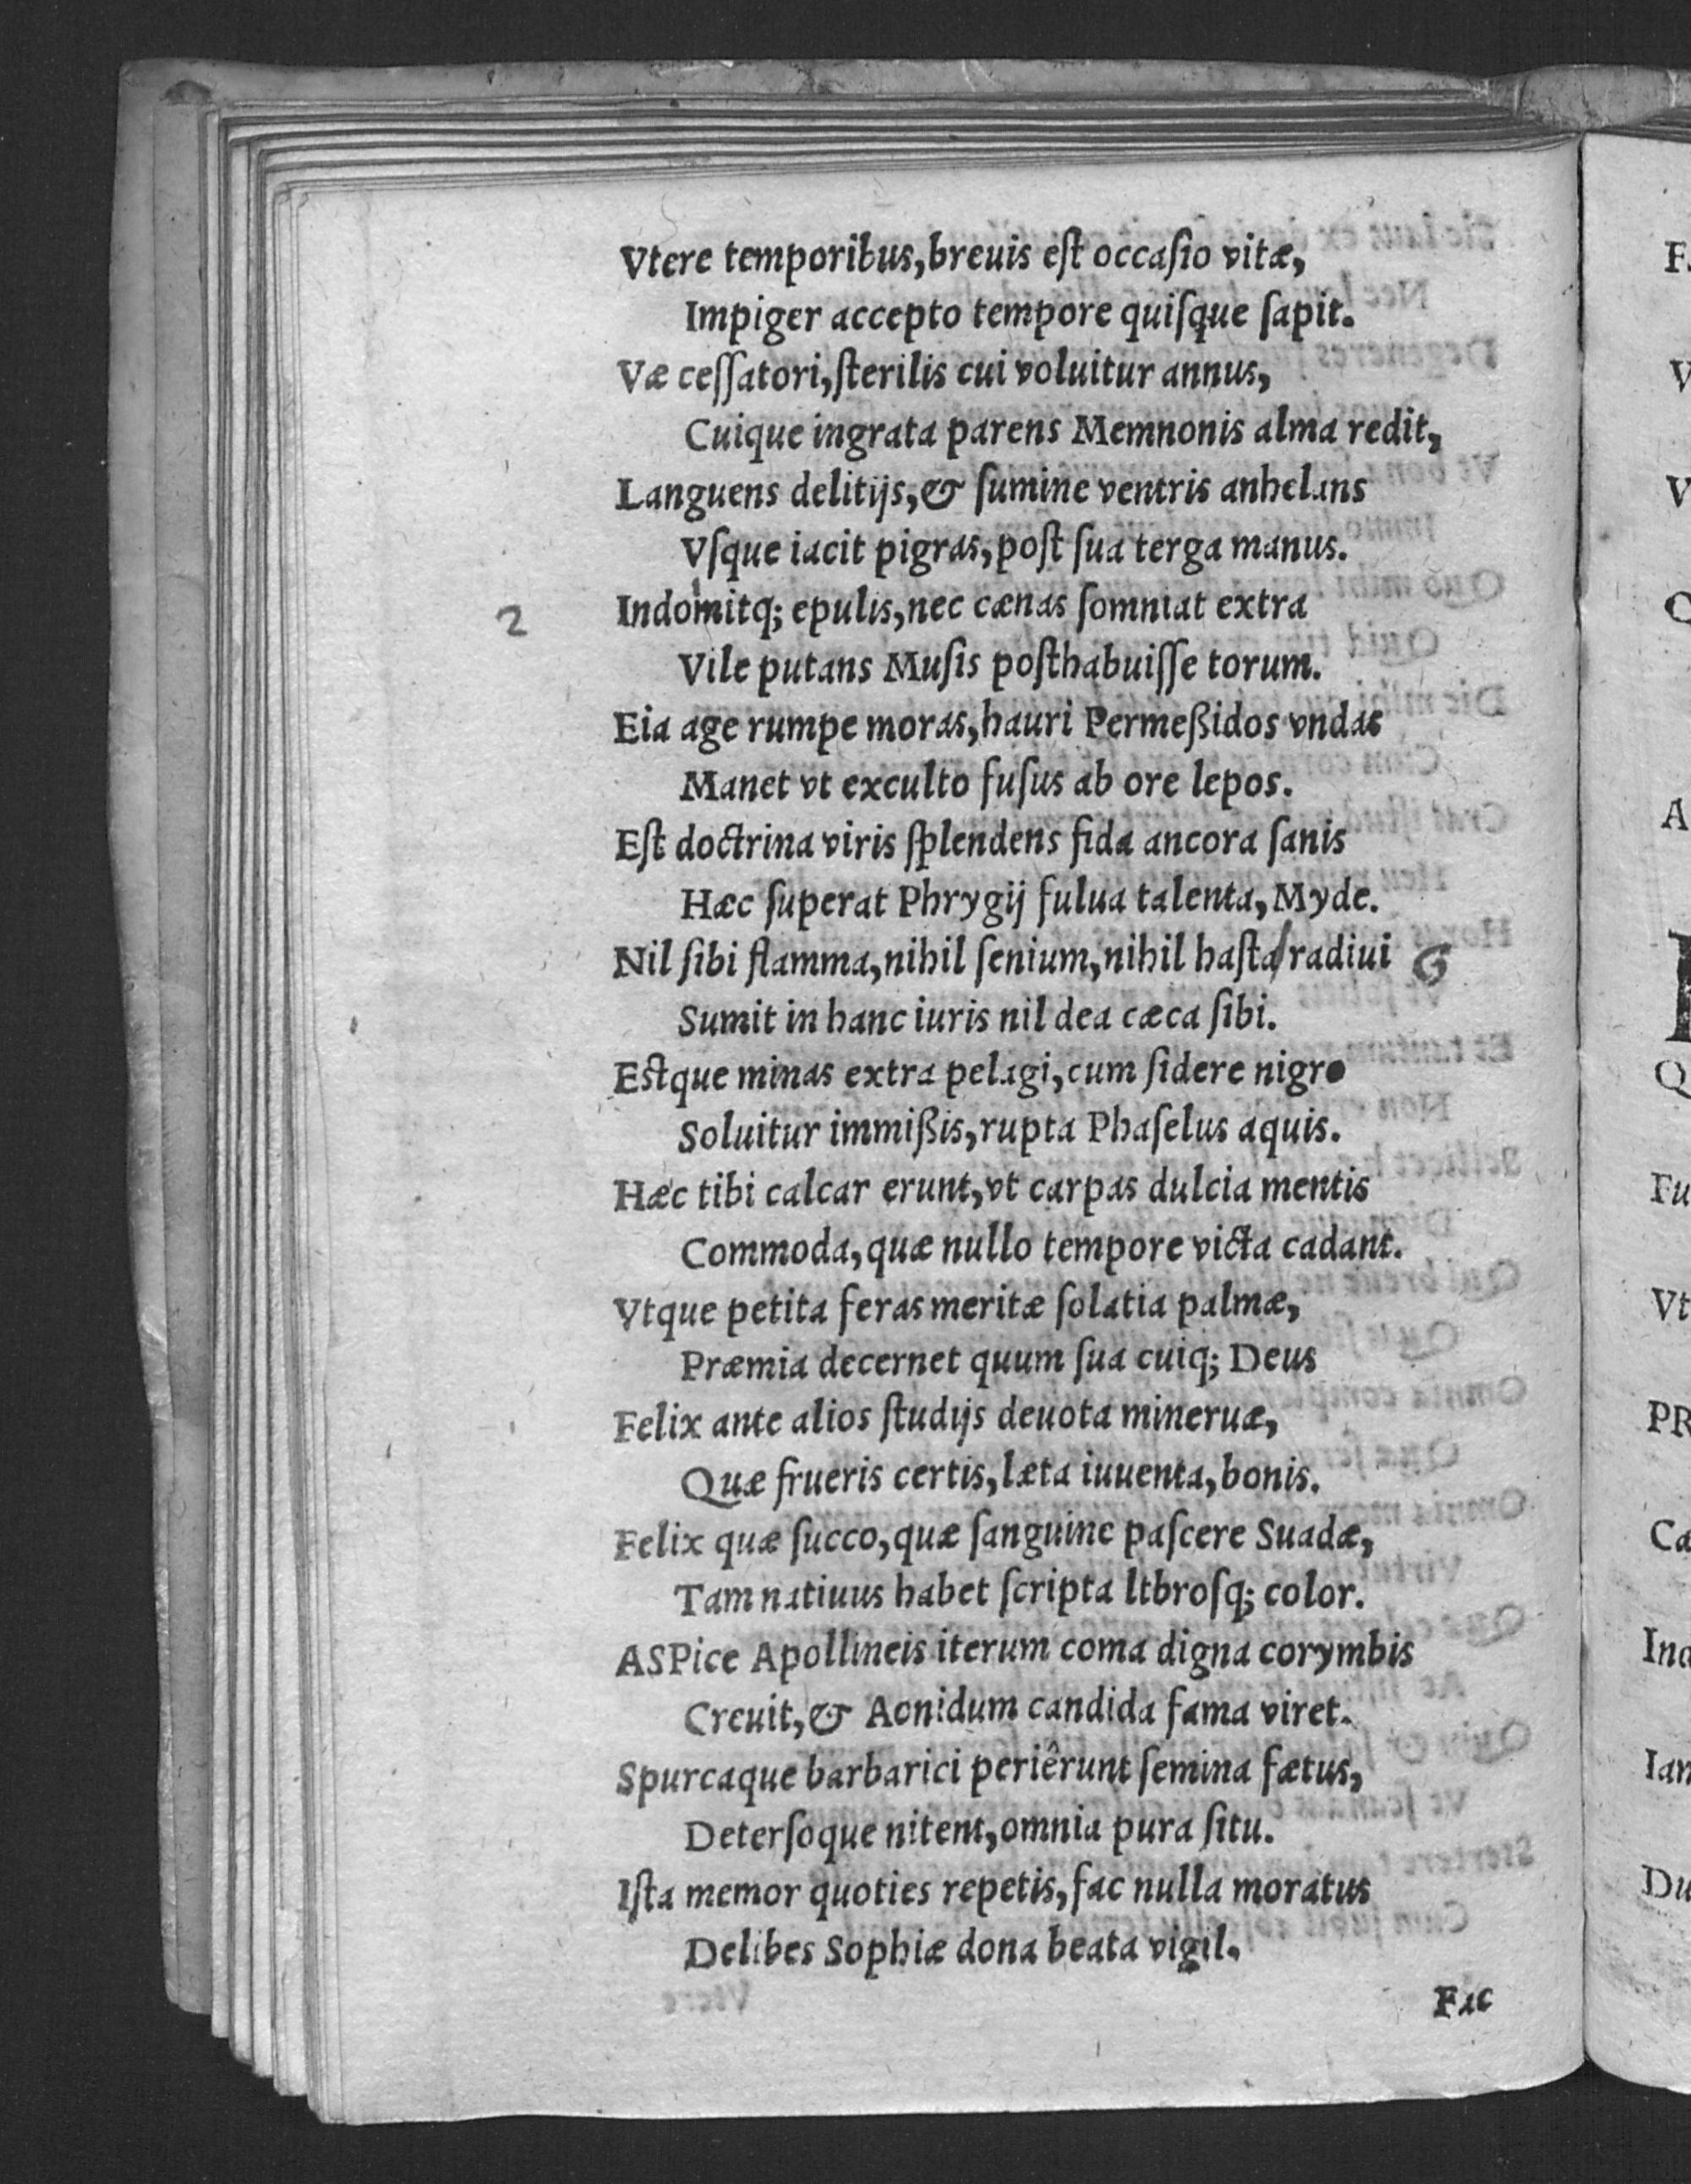 Vtere temporibus, breuis eſt occaſio vitæ,
Impiger accepto tempore quiſque ſapit.
Væ ceſſatori, ſterilis cui voluitur annus,
Cuique ingrata parens Memnonis alma redit,
Languens delitijs, & ſumine ventris anhelans
Vſque iacit pigras, poſt ſua terga manus.
2 Indomitq; epulis, nec cænas ſomniat extra
Vile putans Muſis poſthabuiſſe torum.
Eia age rumpe moras, hauri Permeßidos vndas
Manet vt exculto fuſus ab ore lepos.
Eſt doctrina viris ſplendens fida ancora ſanis
Hæc ſuperat Phrygij fulua talenta, Myde.
Nil ſibi flamma, nihil ſenium, nihil haſta/radiui G
Sumit in hanc iuris nil dea cæca ſibi.
Eſtque minas extra pelagi, cum ſidere nigro
Soluitur immißis, rupta Phaſelus aquis.
Hæc tibi calcar erunt, vt carpas dulcia mentis
Commoda, quæ nullo tempore victa cadant.
Vtque petita feras meritæ ſolatia palmæ,
Præmia decernet quum ſua cuiq; Deus
Felix ante alios ſtudijs deuota mineruæ,
Quæ frueris certis, læta iuuenta, bonis.
Felix quæ ſucco, quæ ſanguine paſcere Suadæ,
Tam natiuus habet ſcripta ltbroſq; color.
ASPice Apollineis iterum coma digna corymbis
Creuit, & Aonidum candida fama viret.
Spurcaque barbarici periêrunt ſemina fætus,
Deterſoque nitent, omnia pura ſitu.
Iſta memor quoties repetis, fac nulla moratus
Delibes Sophiæ dona beata vigil.
Fac